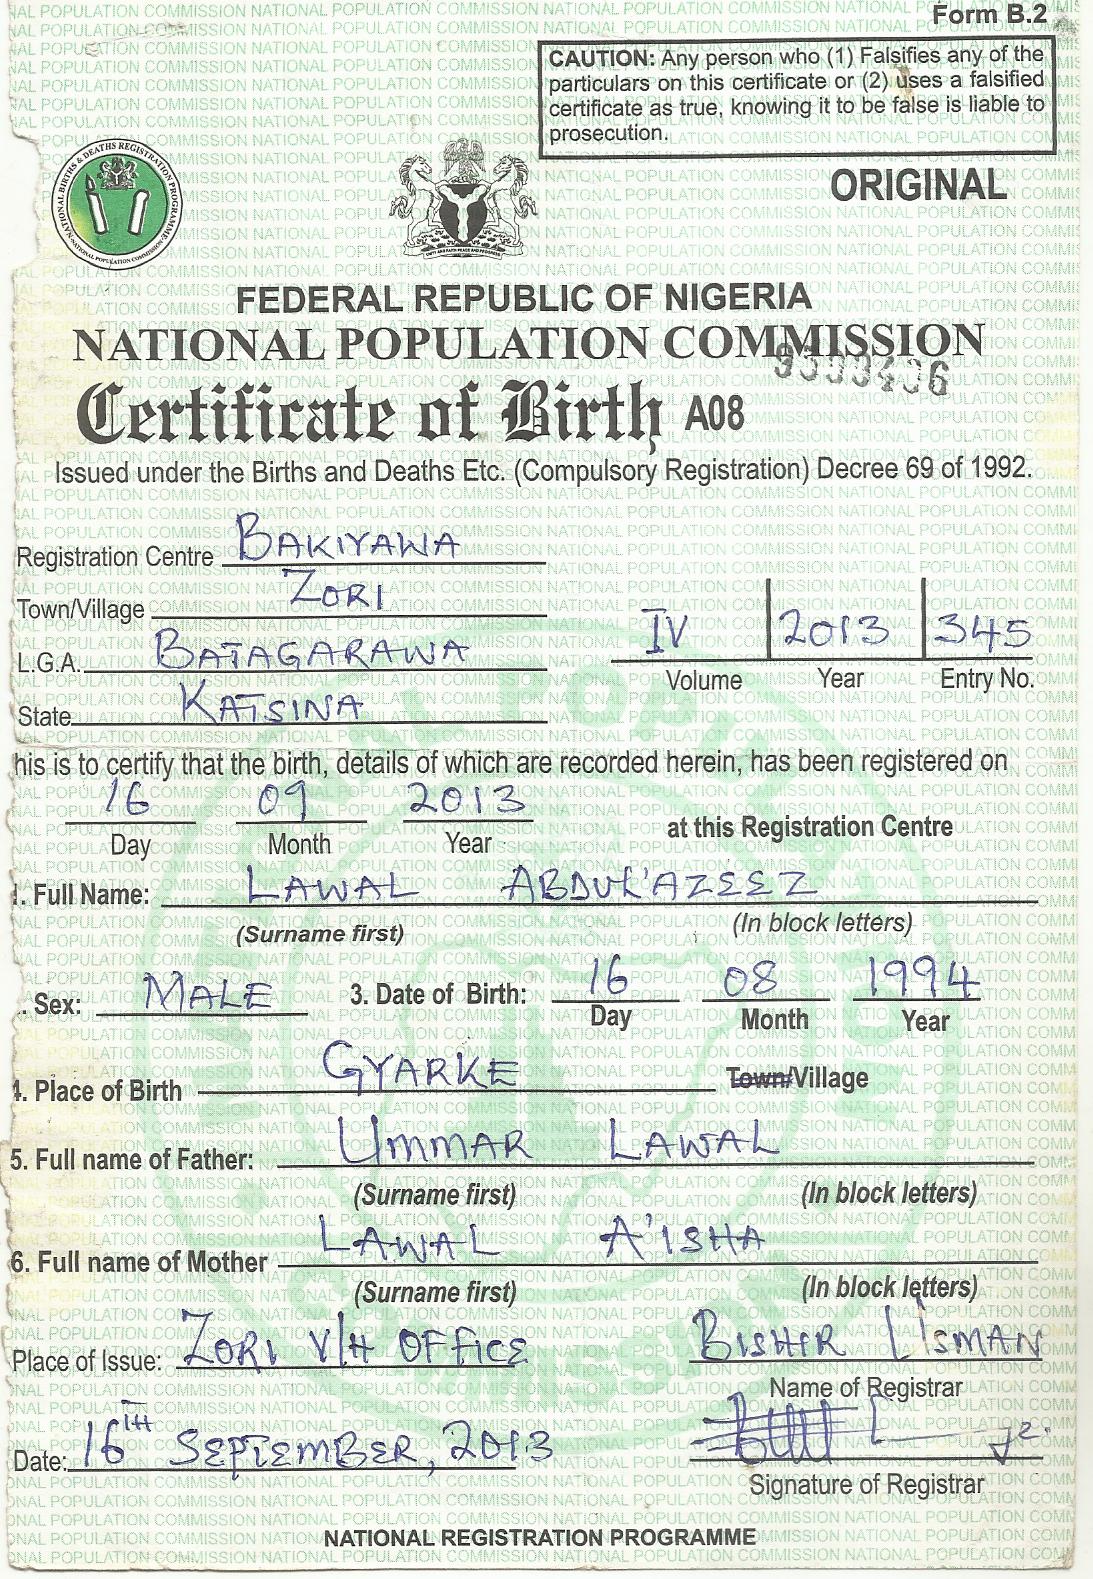 Form B.2
CAUTION: Any person who (1) Falsifies any of the
particulars on this certificate or (2) uses a falsified
certificate as true, knowing it to be false is liable to
prosecution.
NATIONAL BIRTHS & DEATHS REGISTRATION PROGRAMME
NATIONAL POPULATION COMMISSION
ORIGINAL
FEDERAL REPUBLIC OF NIGERIA
NATIONAL POPULATION COMMISSION
Certificate of Birth A08
Issued under the Births and Deaths Etc. (Compulsory Registration) Decree 69 of 1992.
Registration Centre BAKIYAWA
Town/Village ZORI
L.G.A. BATAGARAWA
State KATSINA
IV 2013 345
Volume Year Entry No.
his is to certify that the birth, details of which are recorded herein, has been registered on
16 09 2013
Day Month Year at this Registration Centre
1. Full Name: LAWAL ABDUL'AZEEZ
(Surname first) (In block letters)
. Sex: MALE 3. Date of Birth: 16 08 1994
Day Month Year
4. Place of Birth GYARKE Town/Village
5. Full name of Father: UMMAR LAWAL
(Surname first) (In block letters)
6. Full name of Mother LAWAL A'ISHA
(Surname first) (In block letters)
Place of Issue: ZORI V/H OFFICE BISHIR USMAN
Name of Registrar
Date: 16TH SEPTEMBER, 2013
Signature of Registrar
NATIONAL REGISTRATION PROGRAMME